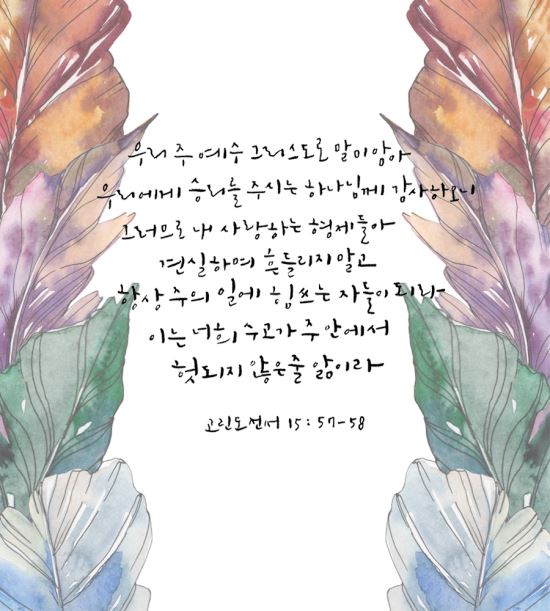 우리 주 예수 그리스도로 말미암아
우리에게 승리를 주시는 하나님께 감사하오니
그러므로 내 사랑하는 형제들아
견실하며 흔들리지 말고
항상 주의 일에 힘쓰는 자들이 되라
이는 너희 수고가 주 안에서
헛되지 않은줄 앎이라
고린도전서 15 : 57-58